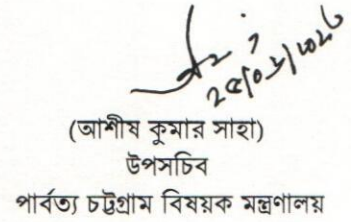 (আশীষ কুমার সাহা)
উপসচিব
পার্বত্য চট্টগ্রাম বিষয়ক মন্ত্রণালয়